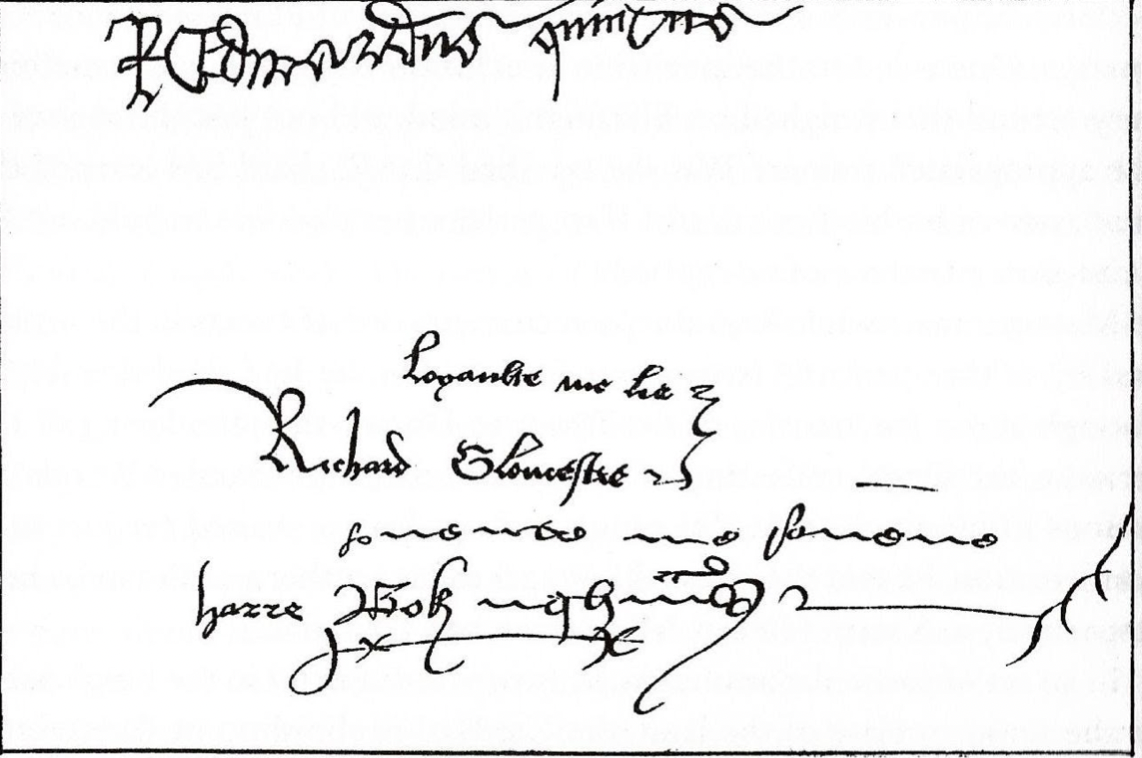 R Edwardus quintus
Loyaulte me lie
Richard Gloucestre
Souente me souene
Harre Bokyngham